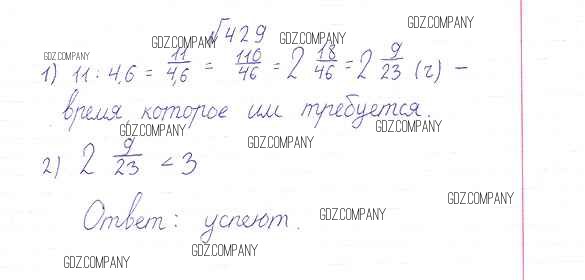 GDZ.COMPANY
№429
GDZ.COMPANY GDZ.COMPANY
1) 11 : 4,6 = 11/4,6 = 110/46 = 2 18/46 = 2 9/23 (ч) –
время, которое им требуется.
GDZ.COMPANY GDZ.COMPANY
GDZ.COMPANY
2) 2 9/23 < 3
GDZ.COMPANY
Ответ: успеют.
GDZ.COMPANY
GDZ.COMPANY
GDZ.COMPANY